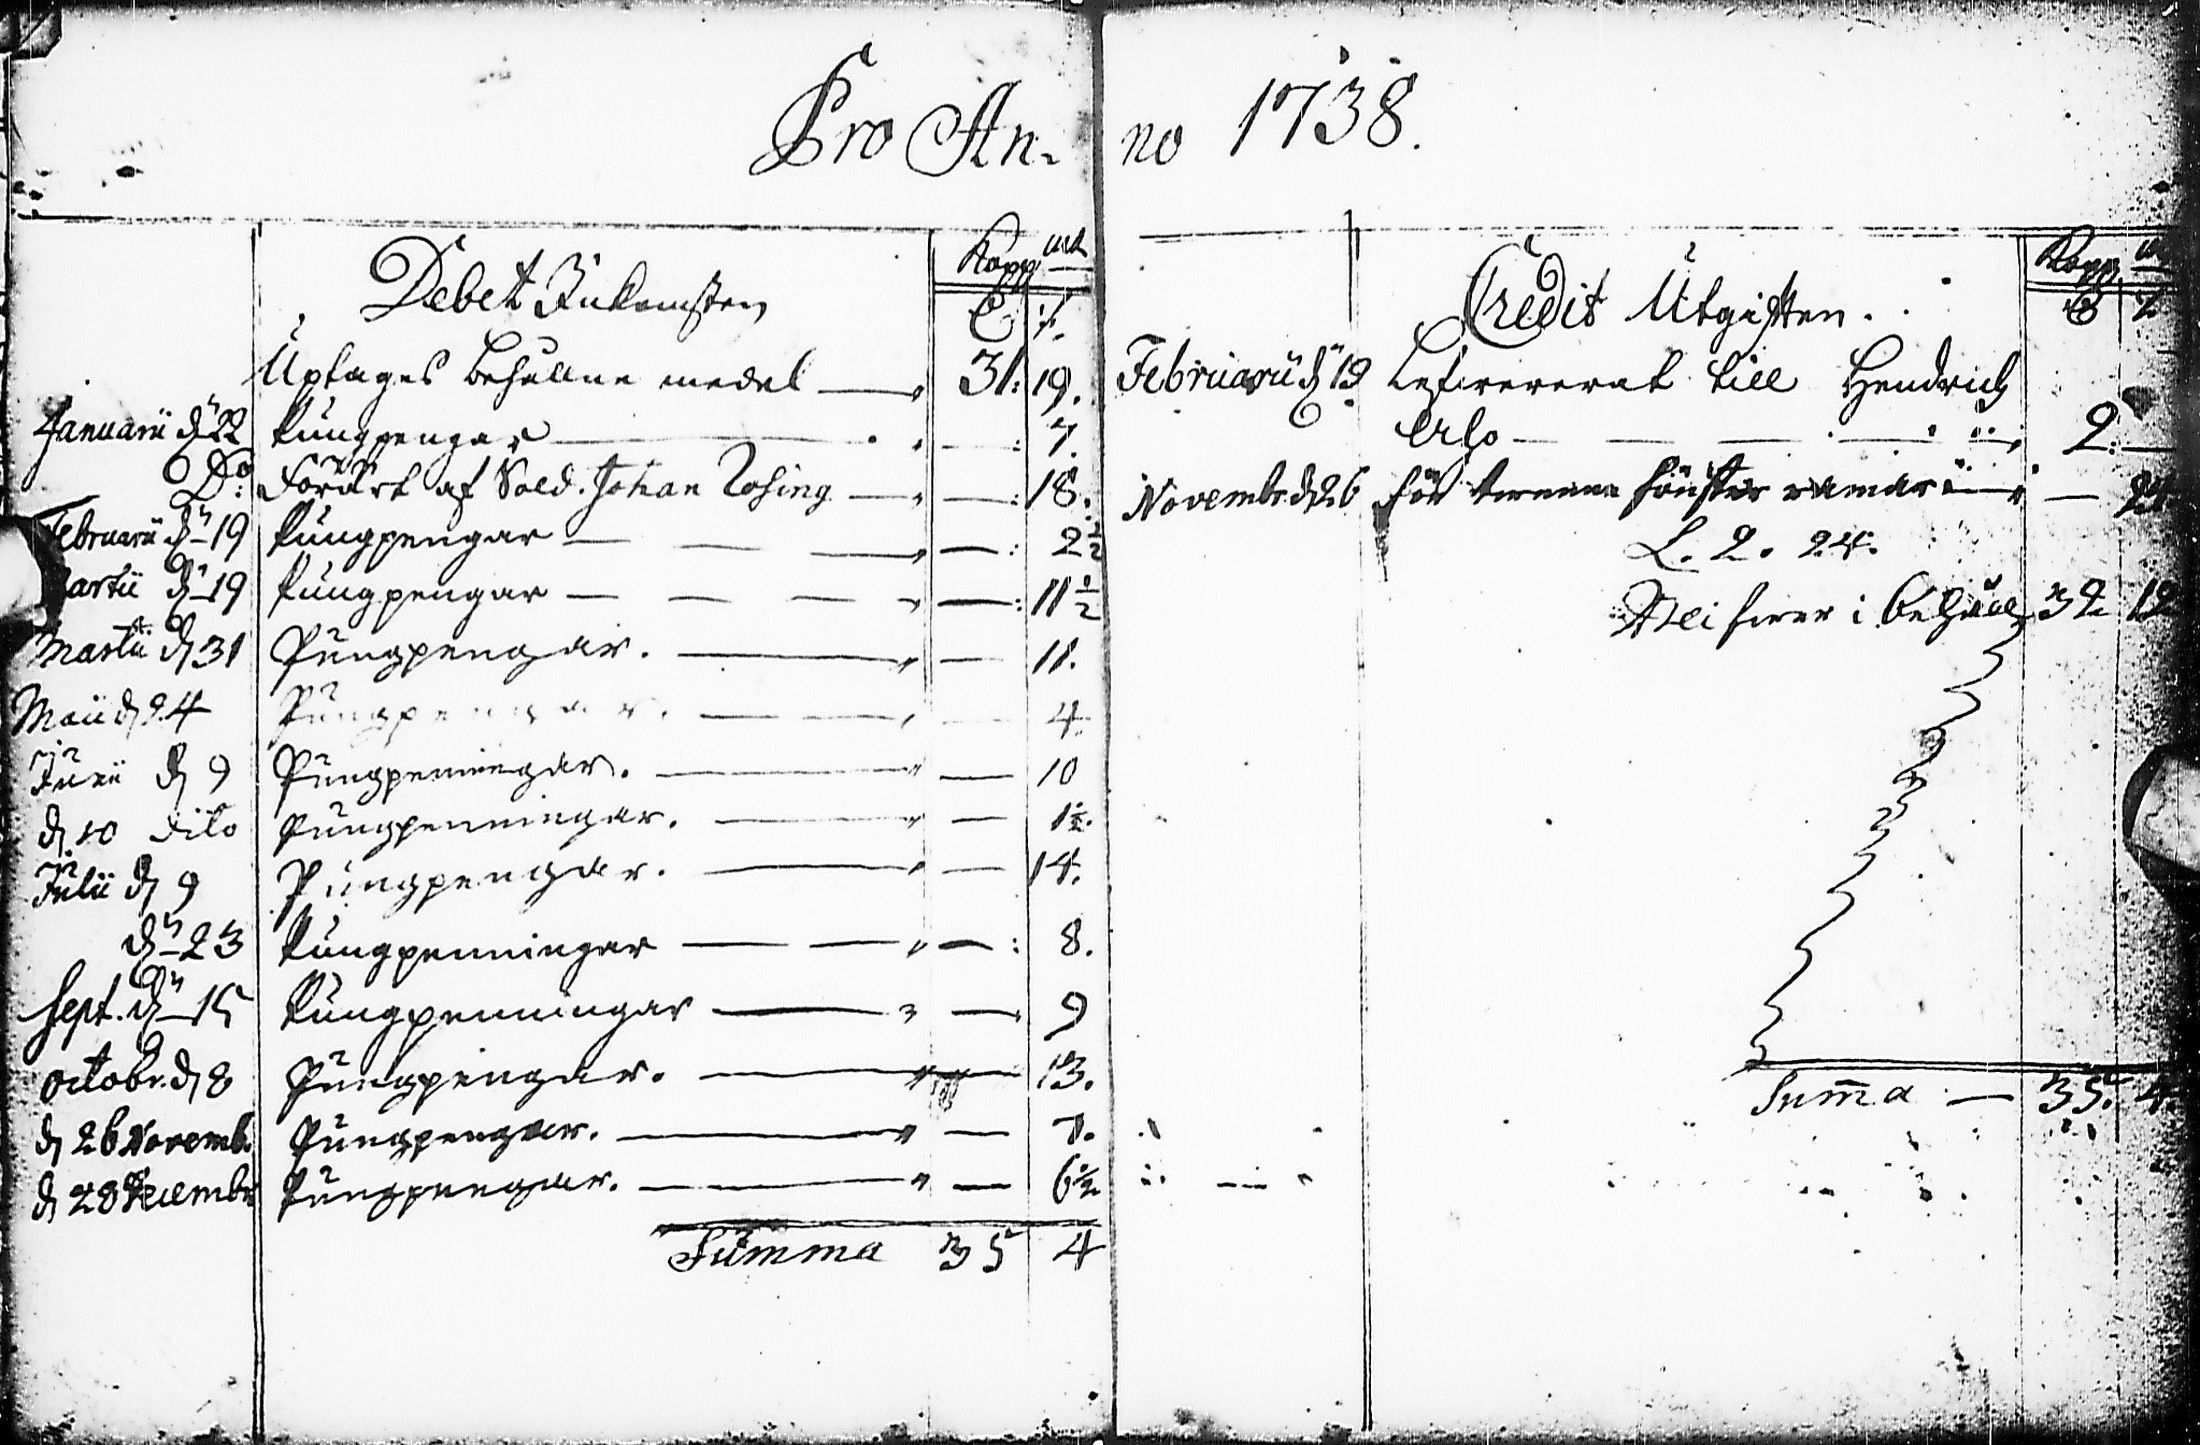 Pro An- no 1738.
Debet Inkomsten Kopp mt
Uptages behållne medel — 31: 19.
Januarii dn 22 Pungpengar — : 7.
Do: Förärt af Sold. Johan Rosing — : 18.
Februarii dn 19 Pungpengar — : 2½
Martii dn 19 Pungpengar — : 11½
Martii d 31 Pungpengar. — 11.
Maii d 24 Pungpengar. — 4.
Junii d 9 Pungpenningar. — 10
d 10 dito Pungpenningar. — 1½.
Julii d 9 Pungpengar. — 14.
dn 23 Pungpenningar — : 8.
Sept. dn 15 Pungpenningar — 9
octobr. d 8 Pungpengar. — 13.
d 26 Novemb. Pungpengar. — 7.
d 28 Decembr Pungpengar. — 6½
Summa 35 4
Credit Utgiften. Kopp
Februarii dn 19 till Hendrich
2: —
Novembr. d 26 för fönster ramar —
L. 2. 24.
i behåll 32
Summa — 35. 4.